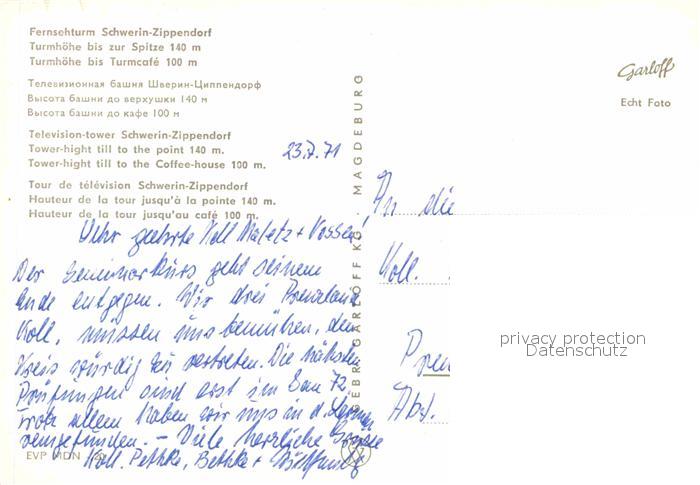 Fernsehturm Schwerin-Zippendorf
Turmhöhe bis zur Spitze 140 m
Turmhöhe bis Turmcafé 100 m
Телевизионная башня Шверин-Циппендорф
Высота башни до верхушки 140 м
Высота башни до кафе 100 м
Television-tower Schwerin-Zippendorf
Tower-hight till to the point 140 m.
Tower-hight till to the Coffee-house 100 m.
Tour de télévision Schwerin-Zippendorf
Hauteur de la tour jusqu'à la pointe 140 m.
Hauteur de la tour jusqu'au café 100 m.
23.7.71
Sehr geehrte Koll.
Der Seminarkurs geht seinem
Ende entgegen. Wir drei Prenzlauer
Koll. müssen uns bemühen, den
Kreis würdig zu vertreten. Die nächsten
Prüfungen sind erst im Jan 72.
Trotz allem haben wir uns in d. Lernen
reingefunden. – Viele herzliche Grüße
Koll. Bethke +
EVP MDN
GEBR. GARLOFF KG, MAGDEBURG
Garloff
Echt Foto
An die
Koll.
Pren
Abt.
privacy protection
Datenschutz